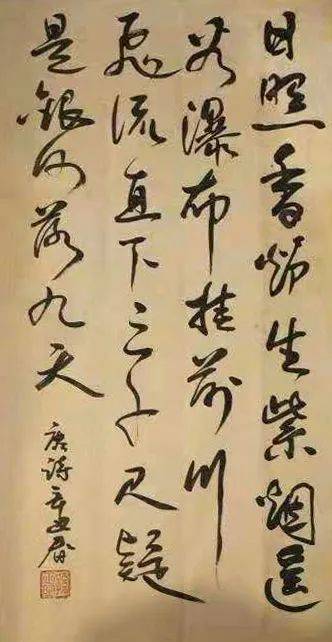 日照香炉生紫烟遥
看瀑布挂前川
飞流直下三千尺疑
是銀河落九天
唐诗辛丑春